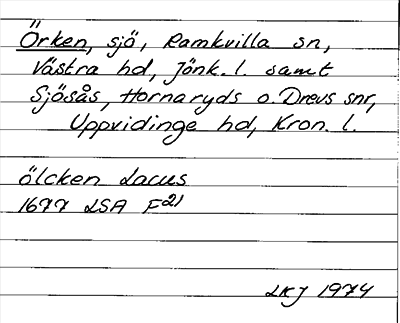 Örken, sjö, Ramkvilla sn,
Västra hd, Jönk. l. samt
Sjösås, Hornaryds o. Drevs snr,
Uppvidinge hd, Kron. l.
ölcken Lacus
1677 LSA F21
LKJ 1974